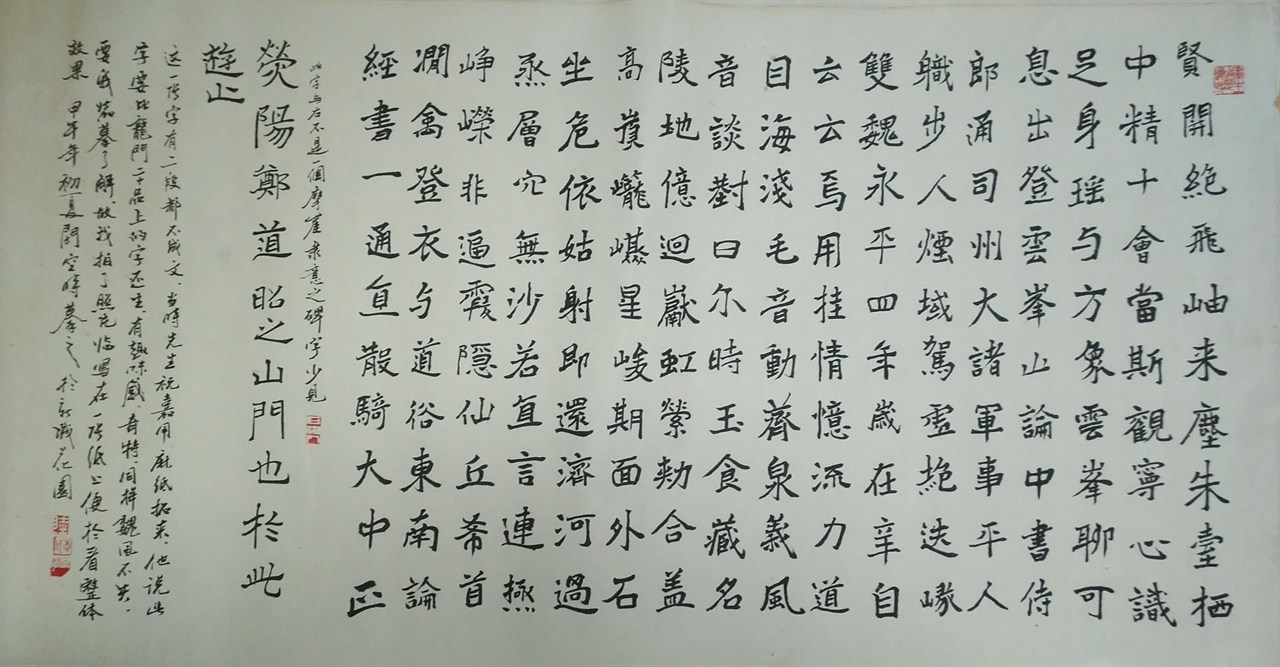 賢開絶飛岫来塵朱臺栖
中精十會當斯觀寧心識
足身瑶与方象雲峯聊可
息出登雲峯山論中書侍
郎通司州大諸軍事平人
職步人煙域駕霊绝迭㟲
雙魏永平四年歲在辛自
云云焉用挂情憶流力道
目海淺毛音動薺泉義風
音談對曰尓時玉食藏名
陵地億迴巘虹縈勑合盖
高嵄巃嶬星峻期面外石
坐危依姑射即還濟河過
烝層穴無沙若宜言連橾
峥嶸非逼霞隠仙丘希首
澗禽登衣与道俗東南論
經書一通直散騎大中正
此字与右不是一個摩崖隶意之碑字少見
熒陽鄭道昭之山門也於此
遊止
这一張字有二段都不成文、当時先生祝嘉用麻紙拓来、他说此
字要比龍門二十品上的字还生、有趣味感、奇特同樣魏風不失、
要我花摹了解、故我拍了照先临寫在一張紙上便於看整体
效果 甲午年初夏閑空時摹之於新城花園